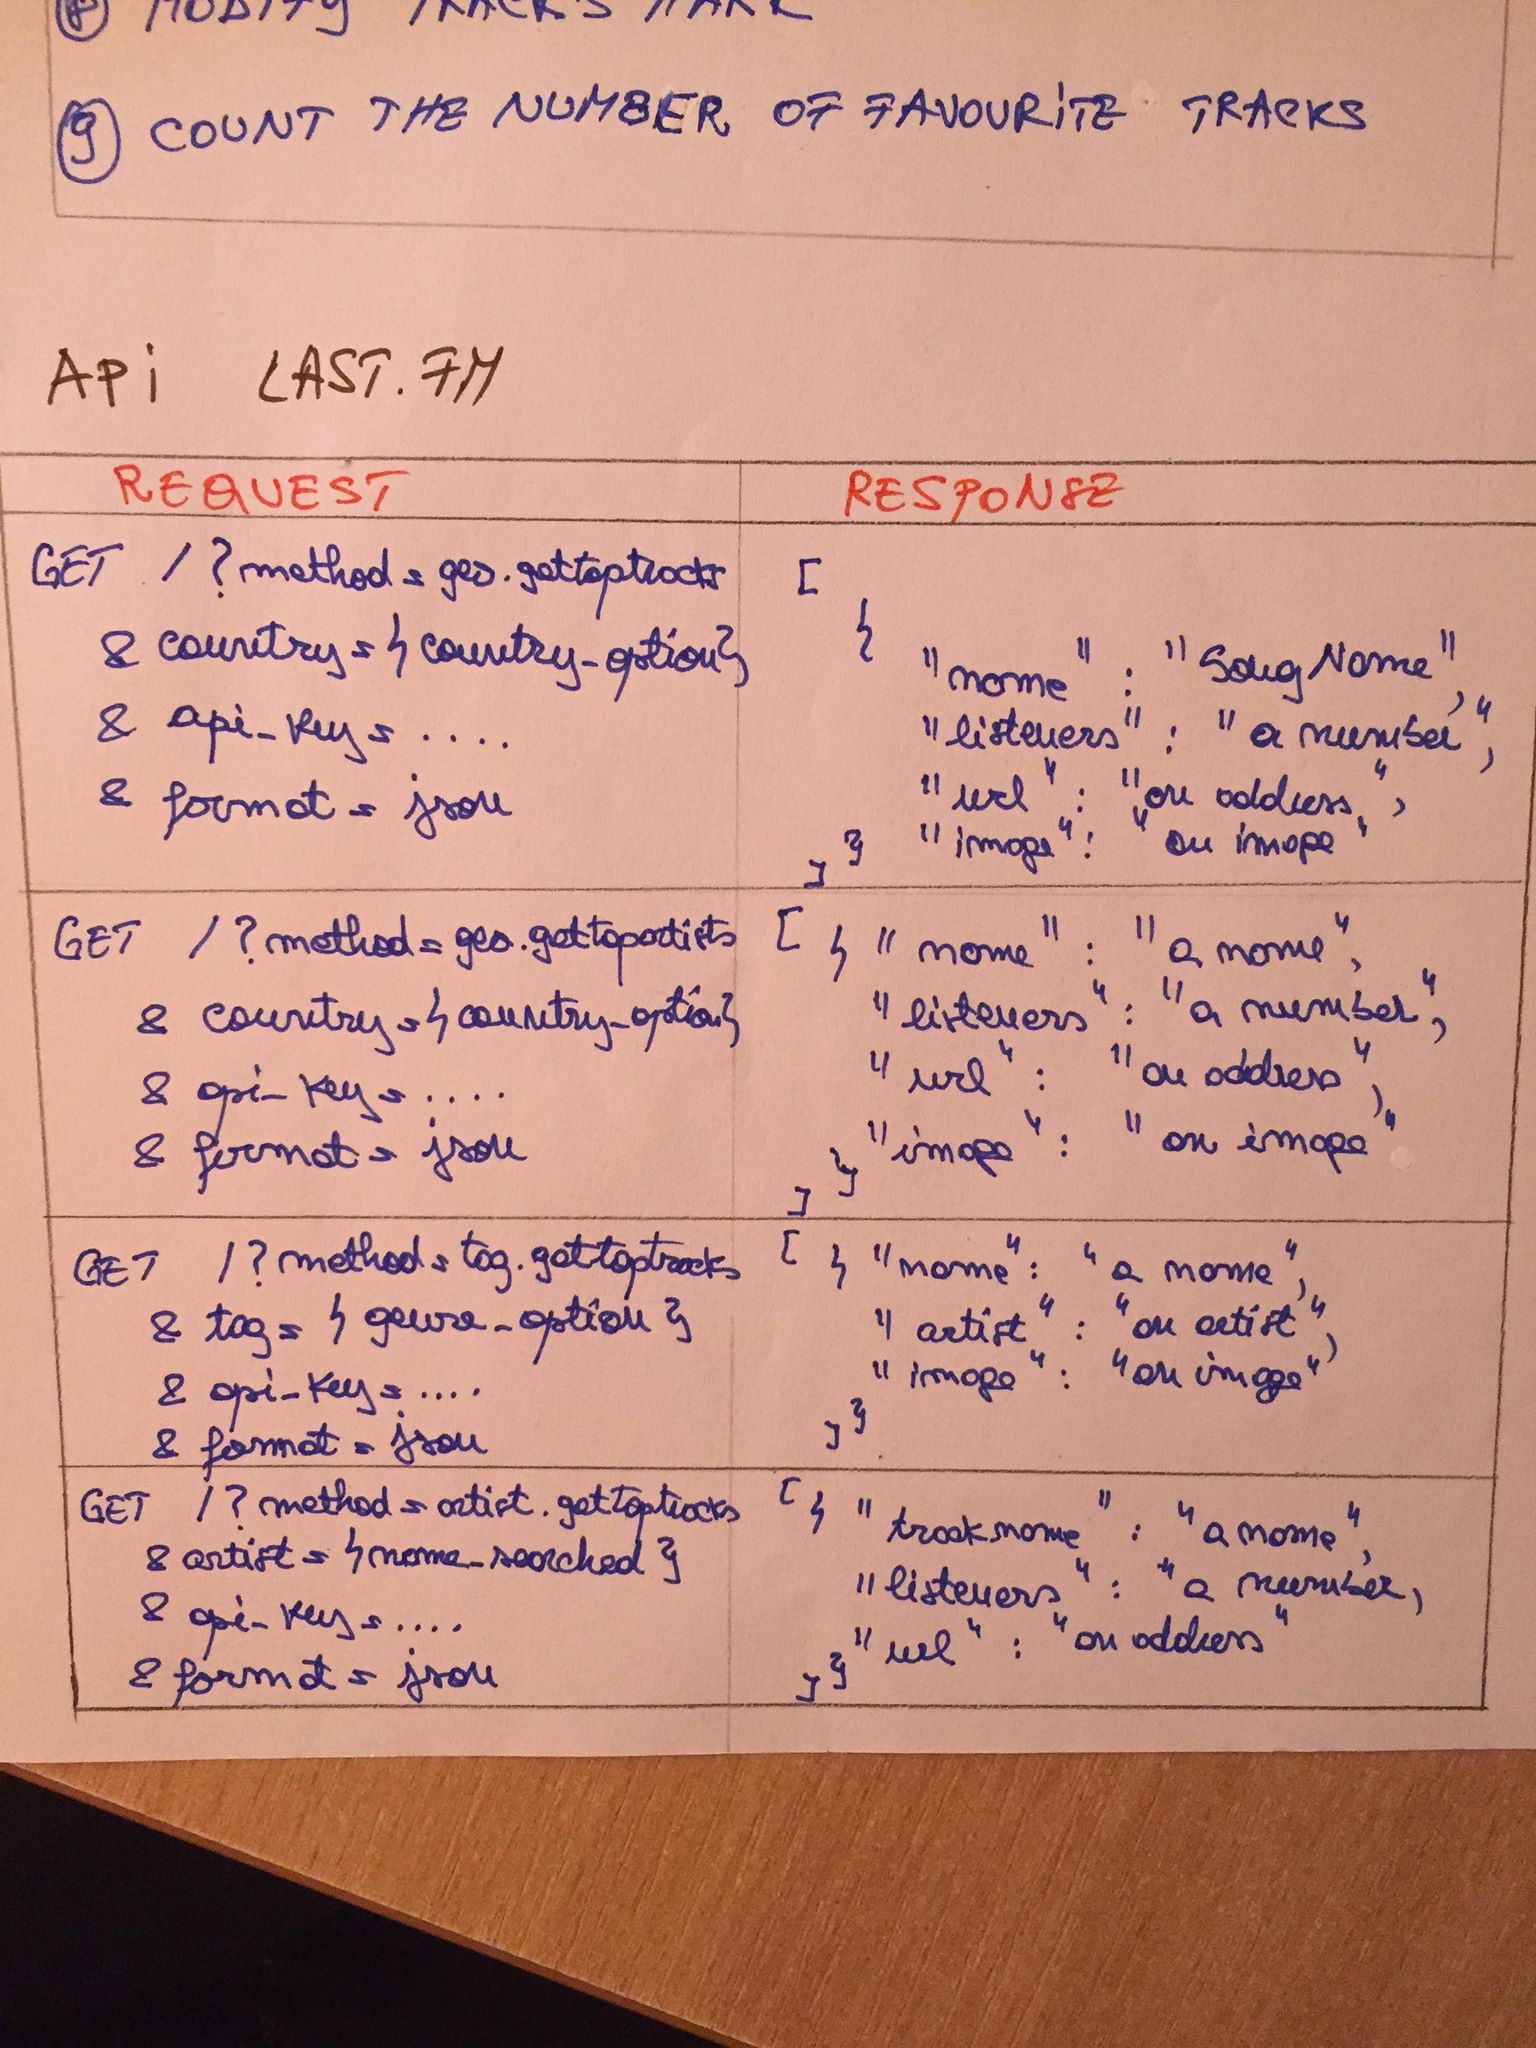 8 MODIFY TRACK'S MARK
9 COUNT THE NUMBER OF FAVOURITE TRACKS
Api LAST.FM
REQUEST RESPONSE
GET /?method=geo.gettoptracks
& country={country_option}
& api_key=....
& format=json
[
{
"name" : "Song Name",
"listeners" : "a number",
"url" : "an address",
"image" : "an image"
] }
GET /?method=geo.gettopartists
& country={country_option}
& api_key=....
& format=json
[ { "name" : "a name",
"listeners" : "a number",
"url" : "an address",
"image" : "an image"
] }
GET /?method=tag.gettoptracks
& tag={genre_option}
& api_key=....
& format=json
[ { "name" : "a name",
"artist" : "an artist",
"image" : "an image"
] }
GET /?method=artist.gettoptracks
& artist={name_searched}
& api_key=....
& format=json
[ { "trackname" : "a name",
"listeners" : "a number,
"url" : "an address"
] }